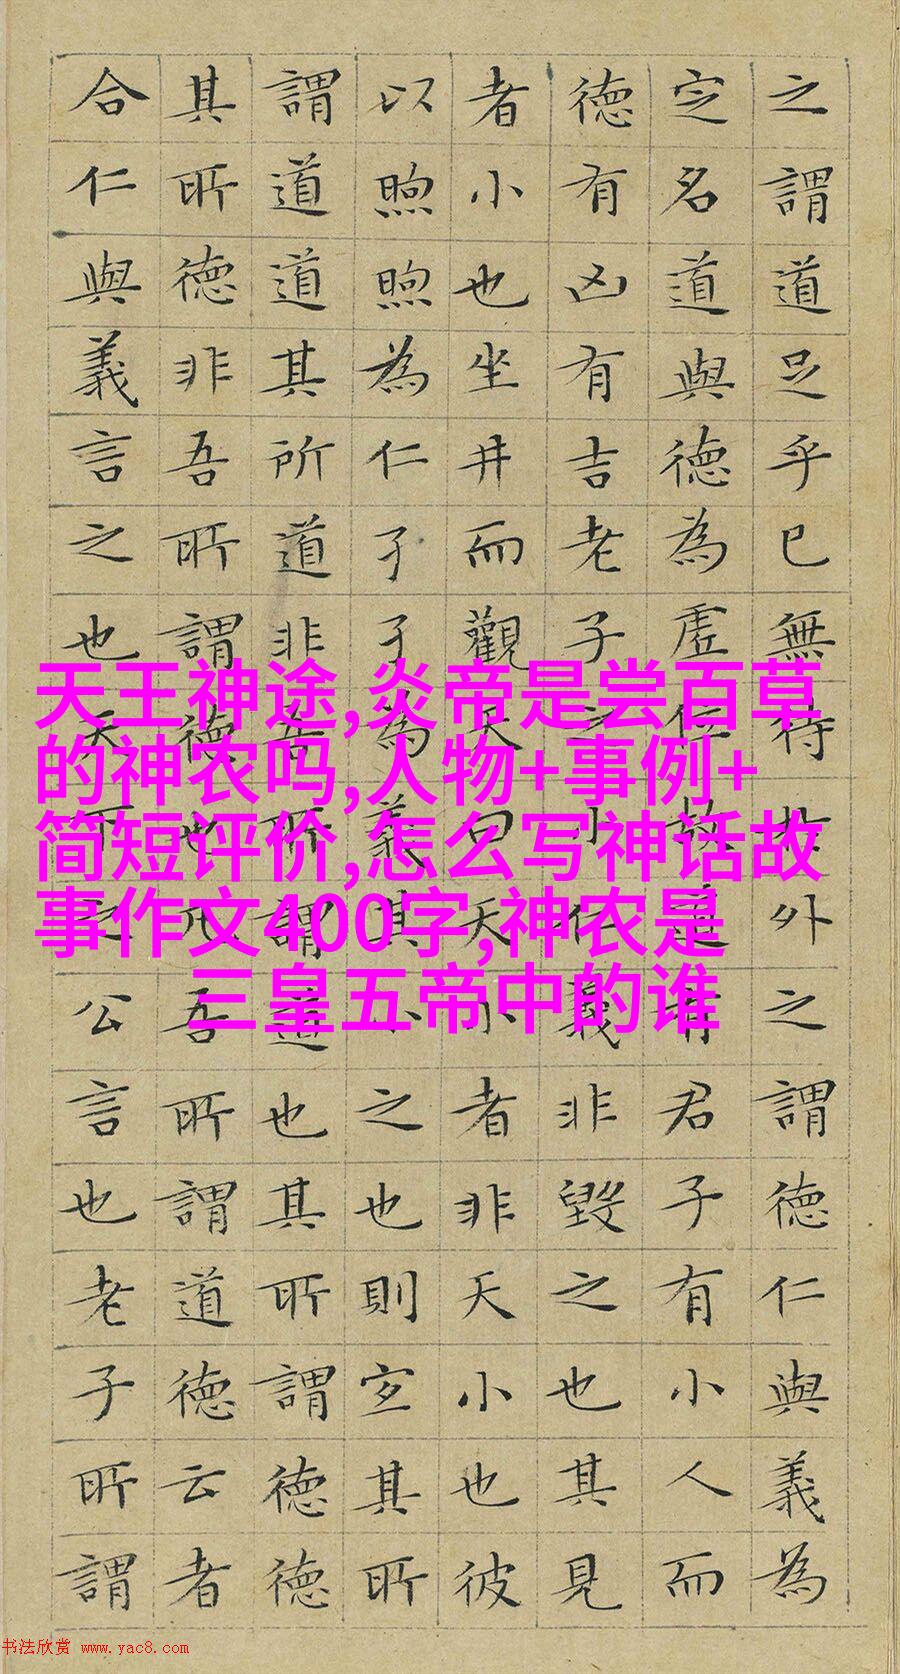 之謂道足乎已無待於外之謂德仁與義為
定名道與德為虛位故道有君子有小人而
德有凶有吉老子之小仁義非毀之也其見
者小也坐井而觀天曰天小者非天小也彼
以煦煦為仁孑孑為義其小之也則宜其所
謂道道其所道非吾所謂道也其所謂德德
其所德非吾所謂德也凡吾所謂道德云者
合仁與義言之也天下之公言也老子所謂
天王神途,炎帝是尝百草
的神农吗,人物+事例+
简短评价,怎么写神话故
事作文400字,神农是
三皇五帝中的谁
书法欣赏 www.yac8.com